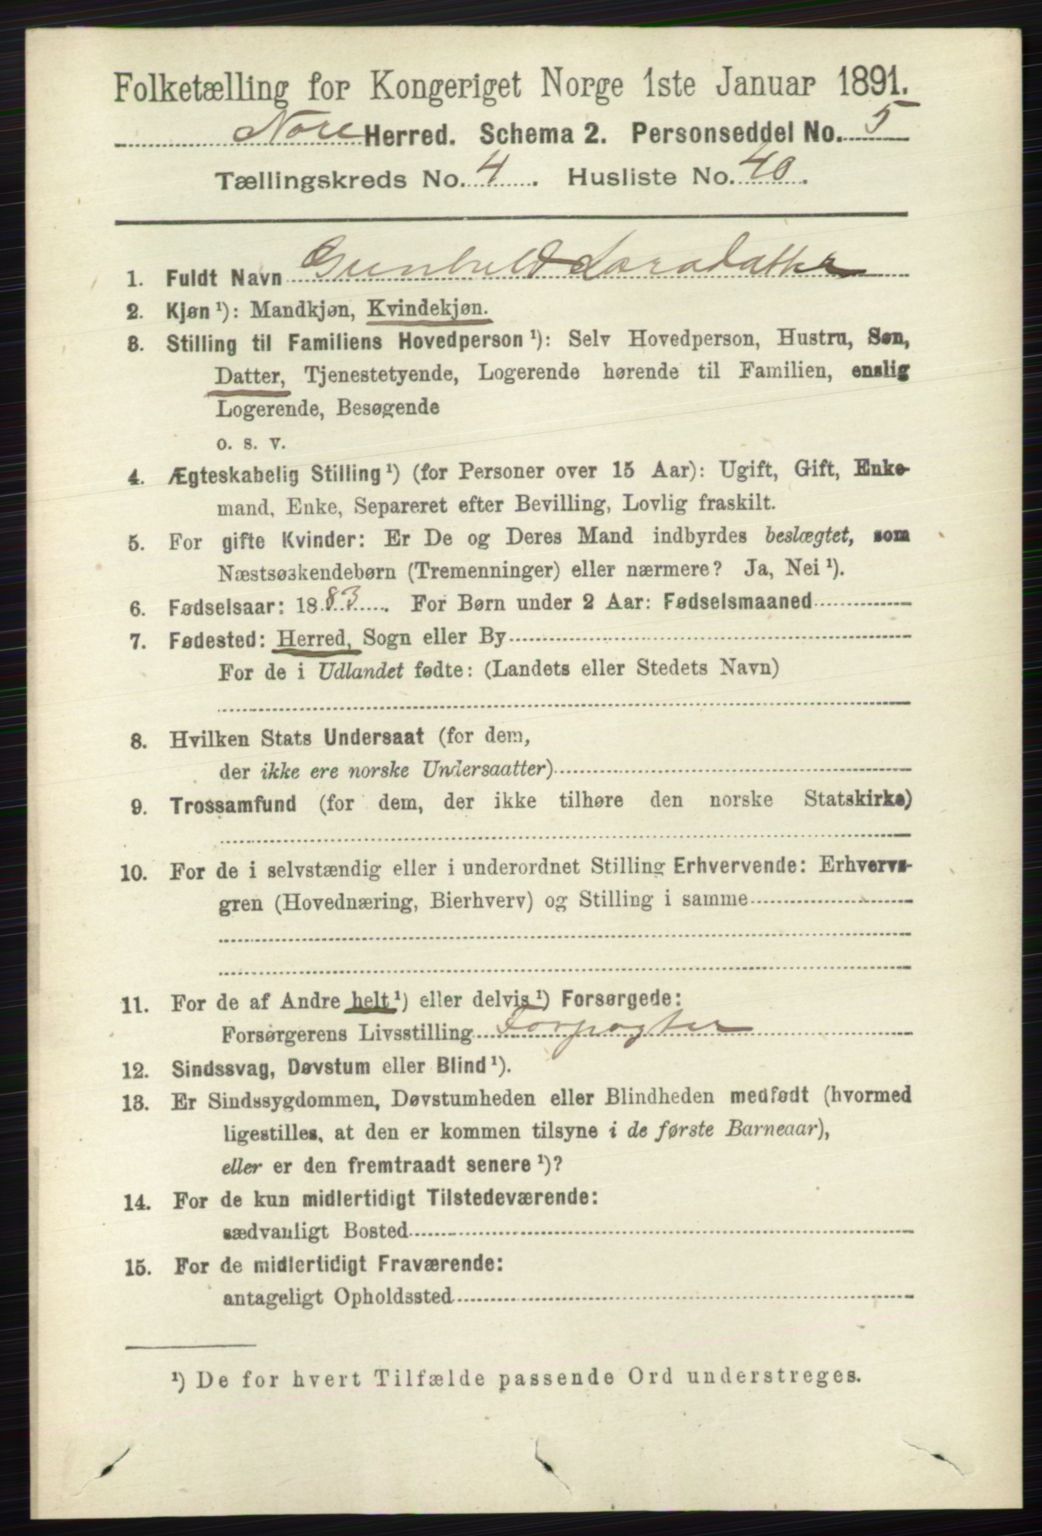 Folketælling for Kongeriget Norge 1ste Januar 1891.
Nore Herred. Schema 2. Personseddel No. 5
Tællingskreds No. 4. Husliste No. 40.
1. Fuldt Navn Gunhild Larsdatter
2. Kjøn ¹): Mandkjøn, Kvindekjøn.
3. Stilling til Familiens Hovedperson ¹): Selv Hovedperson, Hustru, Søn,
Datter, Tjenestetyende, Logerende hørende til Familien, enslig
Logerende, Besøgende
o. s. v.
4. Ægteskabelig Stilling ¹) (for Personer over 15 Aar): Ugift, Gift, Enke-
mand, Enke, Separeret efter Bevilling, Lovlig fraskilt.
5. For gifte Kvinder: Er De og Deres Mand indbyrdes beslægtet, som
Næstsøskendebørn (Tremenninger) eller nærmere? Ja, Nei ¹).
6. Fødselsaar: 1883. For Børn under 2 Aar: Fødselsmaaned
7. Fødested: Herred, Sogn eller By
For de i Udlandet fødte: (Landets eller Stedets Navn)
8. Hvilken Stats Undersaat (for dem,
der ikke ere norske Undersaatter)
9. Trossamfund (for dem, der ikke tilhøre den norske Statskirke)
10. For de i selvstændig eller i underordnet Stilling Erhvervende: Erhvervs-
gren (Hovednæring, Bierhverv) og Stilling i samme
11. For de af Andre helt ¹) eller delvis ¹) Forsørgede:
Forsørgerens Livsstilling Forpagter
12. Sindssvag, Døvstum eller Blind ¹).
13. Er Sindssygdommen, Døvstumheden eller Blindheden medfødt (hvormed
ligestilles, at den er kommen tilsyne i de første Barneaar),
eller er den fremtraadt senere ¹)?
14. For de kun midlertidigt Tilstedeværende:
sædvanligt Bosted
15. For de midlertidigt Fraværende:
antageligt Opholdssted
¹) De for hvert Tilfælde passende Ord understreges.